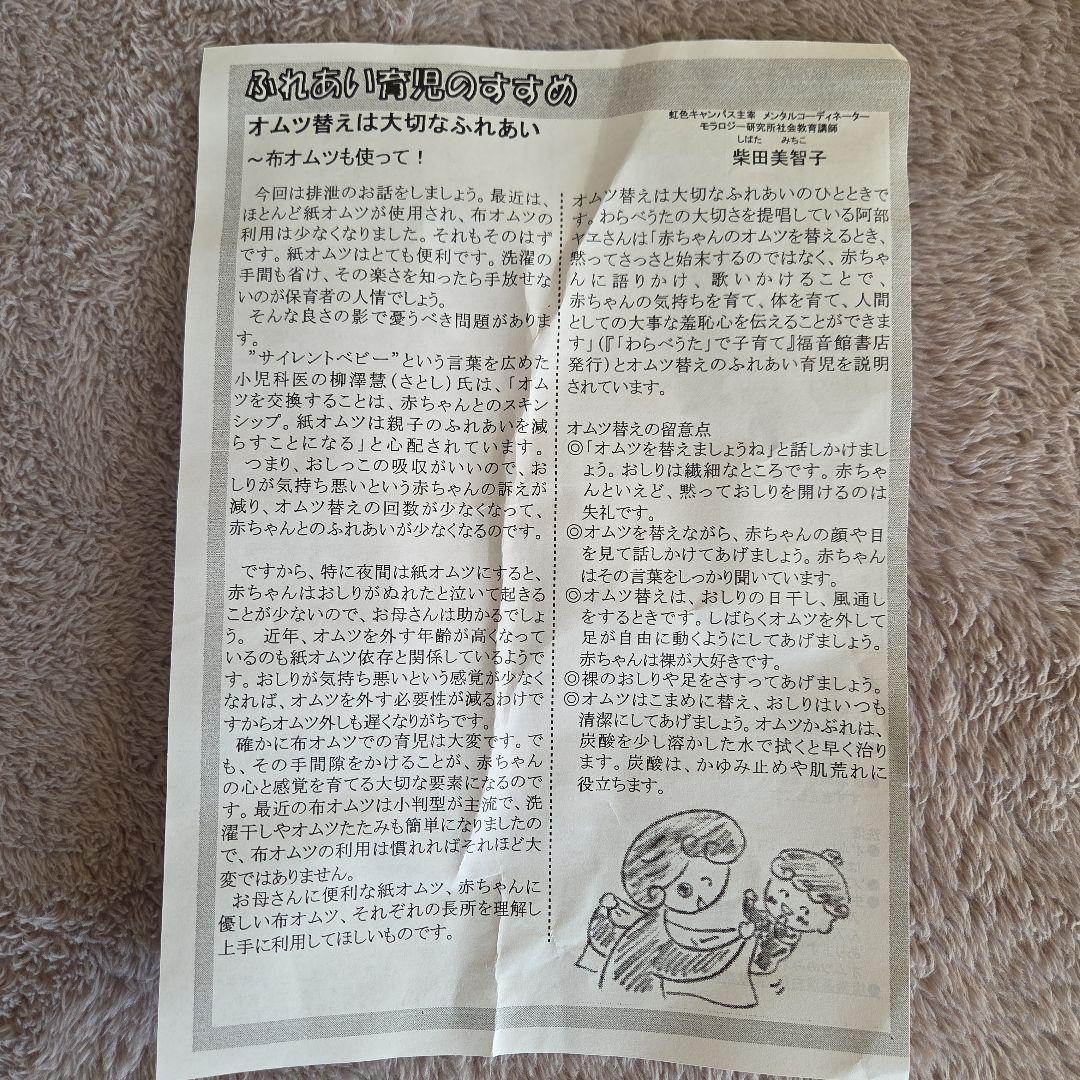 ふれあい育児のすすめ
オムツ替えは大切なふれあい
～布オムツも使って！
虹色キャンパス主宰 メンタルコーディネーター
モラロジー研究所社会教育講師
しばた みちこ
柴田美智子
今回は排泄のお話をしましょう。最近は、
ほとんど紙オムツが使用され、布オムツの
利用は少なくなりました。それもそのはず
です。紙オムツはとても便利です。洗濯の
手間も省け、その楽さを知ったら手放せな
いのが保育者の人情でしょう。
そんな良さの影で憂うべき問題がありま
す。
”サイレントベビー”という言葉を広めた
小児科医の柳澤慧（さとし）氏は、「オム
ツを交換することは、赤ちゃんとのスキン
シップ。紙オムツは親子のふれあいを減
らすことになる」と心配されています。
つまり、おしっこの吸収がいいので、お
しりが気持ち悪いという赤ちゃんの訴えが
減り、オムツ替えの回数が少なくなって、
赤ちゃんとのふれあいが少なくなるのです。
ですから、特に夜間は紙オムツにすると、
赤ちゃんはおしりがぬれたと泣いて起きる
ことが少ないので、お母さんは助かるでしょ
う。 近年、オムツを外す年齢が高くなって
いるのも紙オムツ依存と関係しているようで
す。おしりが気持ち悪いという感覚が少なく
なれば、オムツを外す必要性が減るわけで
すからオムツ外しも遅くなりがちです。
確かに布オムツでの育児は大変です。で
も、その手間隙をかけることが、赤ちゃん
の心と感覚を育てる大切な要素になるので
す。最近の布オムツは小判型が主流で、洗
濯干しやオムツたたみも簡単になりましたの
で、布オムツの利用は慣れればそれほど大
変ではありません。
お母さんに便利な紙オムツ、赤ちゃんに
優しい布オムツ、それぞれの長所を理解し
上手に利用してほしいものです。
オムツ替えは大切なふれあいのひとときで
す。わらべうたの大切さを提唱している阿部
ヤエさんは「赤ちゃんのオムツを替えるとき、
黙ってさっさと始末するのではなく、赤ちゃ
んに語りかけ、歌いかけることで、
赤ちゃんの気持ちを育て、体を育て、人間
としての大事な羞恥心を伝えることができま
す」（『「わらべうた」で子育て』福音館書店
発行）とオムツ替えのふれあい育児を説明
されています。
オムツ替えの留意点
◎「オムツを替えましょうね」と話しかけましょ
う。おしりは繊細なところです。赤ちゃ
んといえど、黙っておしりを開けるのは
失礼です。
◎オムツを替えながら、赤ちゃんの顔や目
を見て話しかけてあげましょう。赤ちゃん
はその言葉をしっかり聞いています。
◎オムツ替えは、おしりの日干し、風通し
をするときです。しばらくオムツを外して
足が自由に動くようにしてあげましょう。
赤ちゃんは裸が大好きです。
◎裸のおしりや足をさすってあげましょう。
◎オムツはこまめに替え、おしりはいつも
清潔にしてあげましょう。オムツかぶれは、
炭酸を少し溶かした水で拭くと早く治り
ます。炭酸は、かゆみ止めや肌荒れに
役立ちます。